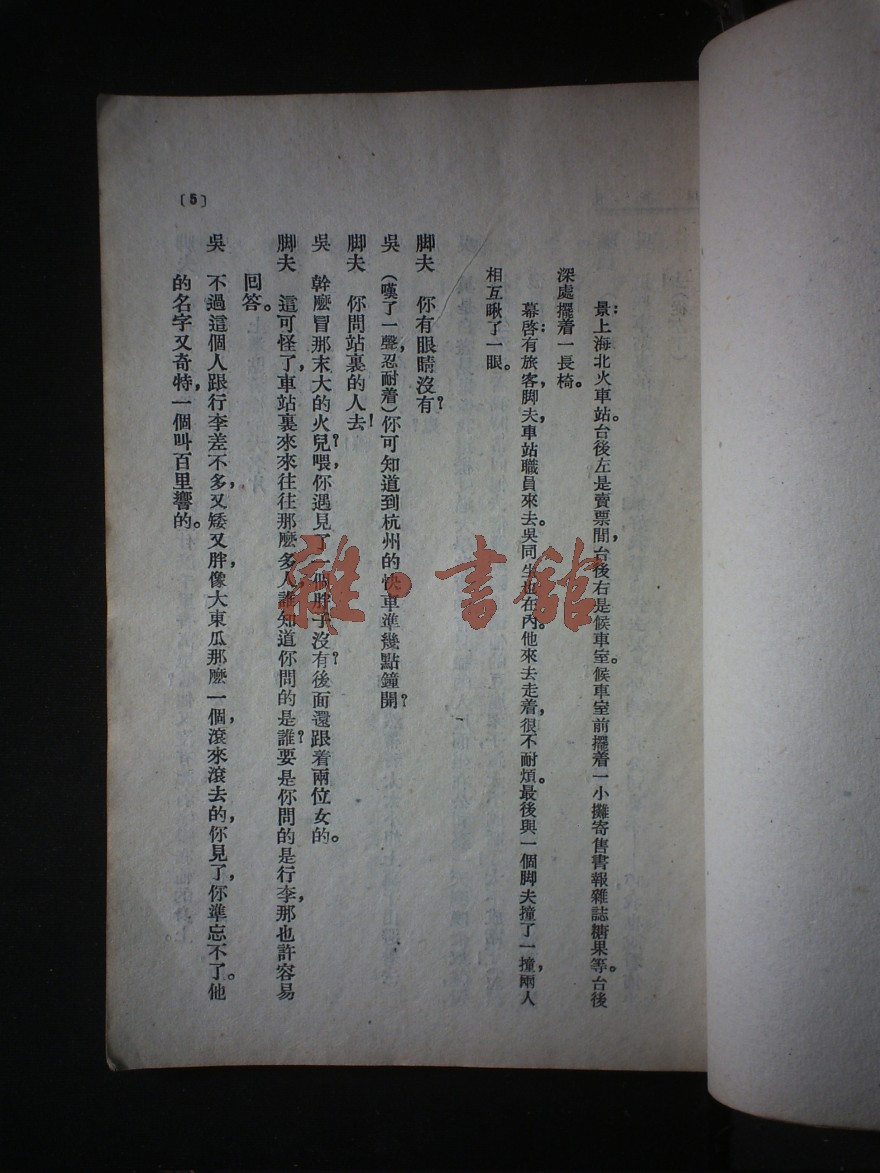 景：上海北火車站。台後左是賣票間，台後右是候車室。候車室前擺着一小攤寄售書報雜誌糖果等。台後
深處擺着一長椅。
幕啓：有旅客，脚夫，車站職員來去。吳同生也在內。他來去走着，很不耐煩。最後與一個脚夫撞了一撞，兩人
相互瞅了一眼。
脚夫　你有眼睛沒有？
吳　（嘆了一聲，忍耐着）你可知道到杭州的快車準幾點鐘開？
脚夫　你問站裏的人去！
吳　幹麼冒那末大的火兒？喂，你遇見了一個胖子沒有？後面還跟着兩位女的。
脚夫　這可怪了，車站裏來來往往那麼多人，誰知道你問的是誰？要是你問的是行李，那也許容易
回答。
吳　不過這個人跟行李差不多，又矮又胖，像大東瓜那麼一個，滾來滾去的，你見了，你準忘不了。他
的名字又奇特，一個叫百里響的。
〔5〕
雜·書館